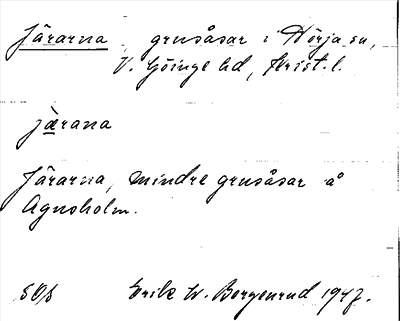 Järarna grusåsar i Hörja sn,
V. Göinge hd, Krist. l.
jærana
Järarna, mindre grusåsar å
Agnsholm.
Erik W. Borgenrud 1947.